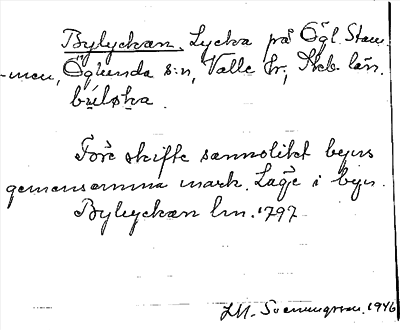 Bylyckan. Lycka på Ögl. Stam-
-men, Öglunda s:n, Valle hr, Skb. län.
býløka.
Före skifte sannolikt byns
gemensamma mark. Låg i byn.
Bylyckan lm. 1797
I.M. Svenungsson. 1946